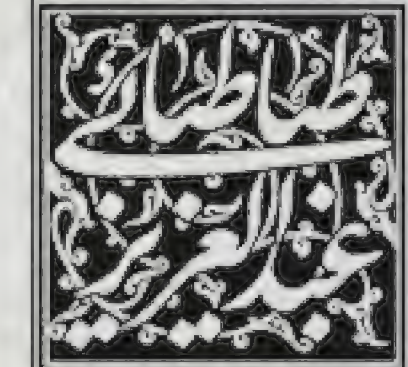 عبدالعزيز
طباطبائي